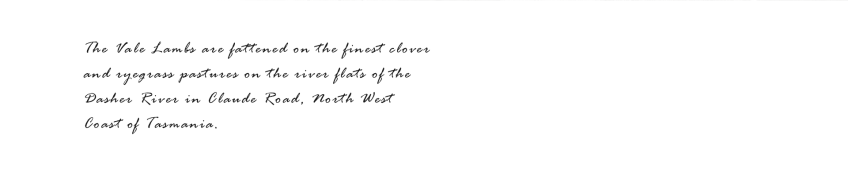 The Vale Lambs are fattened on the finest clover
and ryegrass pastures on the river flats of the
Dasher River in Claude Road, North West
Coast of Tasmania.